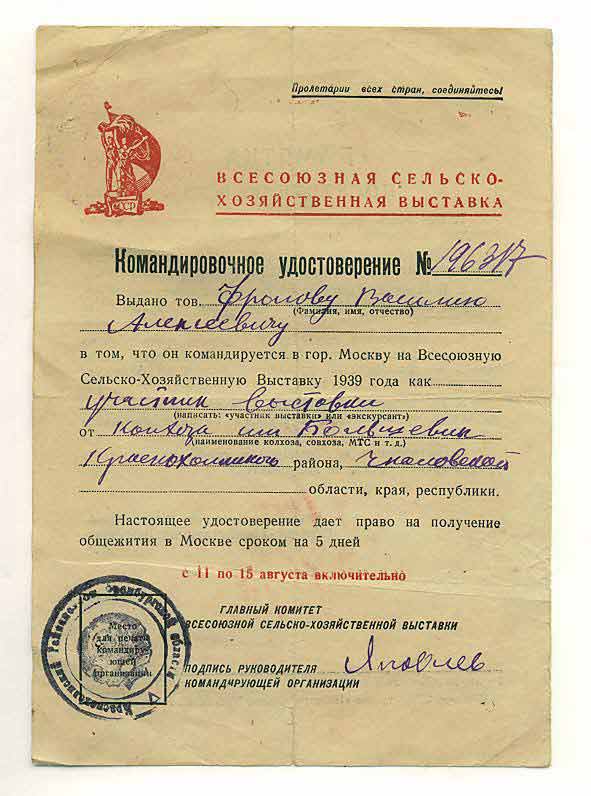 Пролетарии всех стран, соединяйтесь!
СССР
ВСЕСОЮЗНАЯ СЕЛЬСКО-
ХОЗЯЙСТВЕННАЯ ВЫСТАВКА
Командировочное удостоверение № 196317
Выдано тов. Фролову Василию
(Фамилия, имя, отчество)
Алексеевичу
в том, что он командируется в гор. Москву на Всесоюзную
Сельско-Хозяйственную Выставку 1939 года как
участник выставки
(написать: «участник выставки» или «экскурсант»)
от колхоза им Большевик
(наименование колхоза, совхоза, МТС и т. д.)
Краснохолмского района, Чкаловской
области, края, республики.
Настоящее удостоверение дает право на получение
общежития в Москве сроком на 5 дней
с 11 по 15 августа включительно
ГЛАВНЫЙ КОМИТЕТ
ВСЕСОЮЗНОЙ СЕЛЬСКО-ХОЗЯЙСТВЕННОЙ ВЫСТАВКИ
Место
для печати
командиру-
ющей
организации
Краснохолмский Оренбургской области
ПОДПИСЬ РУКОВОДИТЕЛЯ Яковлев
КОМАНДИРУЮЩЕЙ ОРГАНИЗАЦИИ